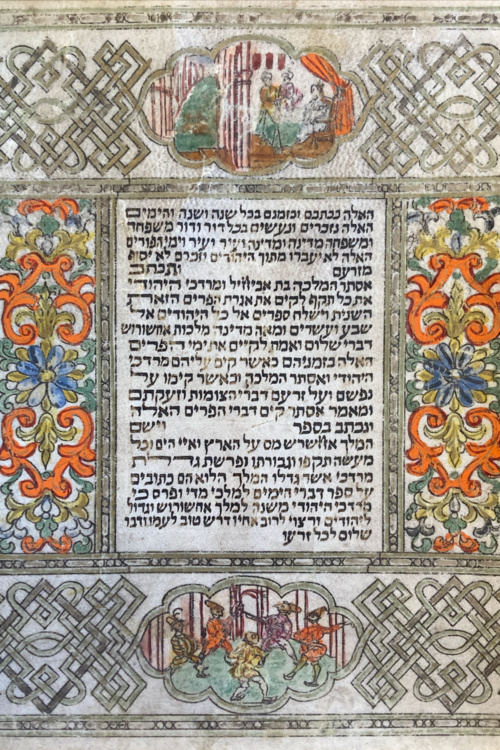 האלה ככתבם וכזמנם בכל שנה ושנה והימים
האלה נזכרים ונעשים בכל דור ודור משפחה
ומשפחה מדינה ומדינה ועיר ועיר וימי הפורים
האלה לא יעברו מתוך היהודים וזכרם לא יסוף
מזרעם ותכתב
אסתר המלכה בת אביחיל ומרדכי היהודי
את כל תקף לקים את אגרת הפרים הזאת
השנית וישלח ספרים אל כל היהודים אל
שבע ועשרים ומאה מדינה מלכות אחשורוש
דברי שלום ואמת לקיים את ימי הפרים
האלה בזמניהם כאשר קים עליהם מרדכי
היהודי ואסתר המלכה וכאשר קימו על
נפשם ועל זרעם דברי הצומות וזעקתם
ומאמר אסתר קים דברי הפרים האלה
ונכתב בספר וישם
המלך אחשרש מס על הארץ ואיי הים וכל
מעשה תקפו וגבורתו ופרשת גדלת
מרדכי אשר גדלו המלך הלוא הם כתובים
על ספר דברי הימים למלכי מדי ופרס כי
מרדכי היהודי משנה למלך אחשורוש וגדול
ליהודים ורצוי לרוב אחיו דרש טוב לעמו ודבר
שלום לכל זרעו